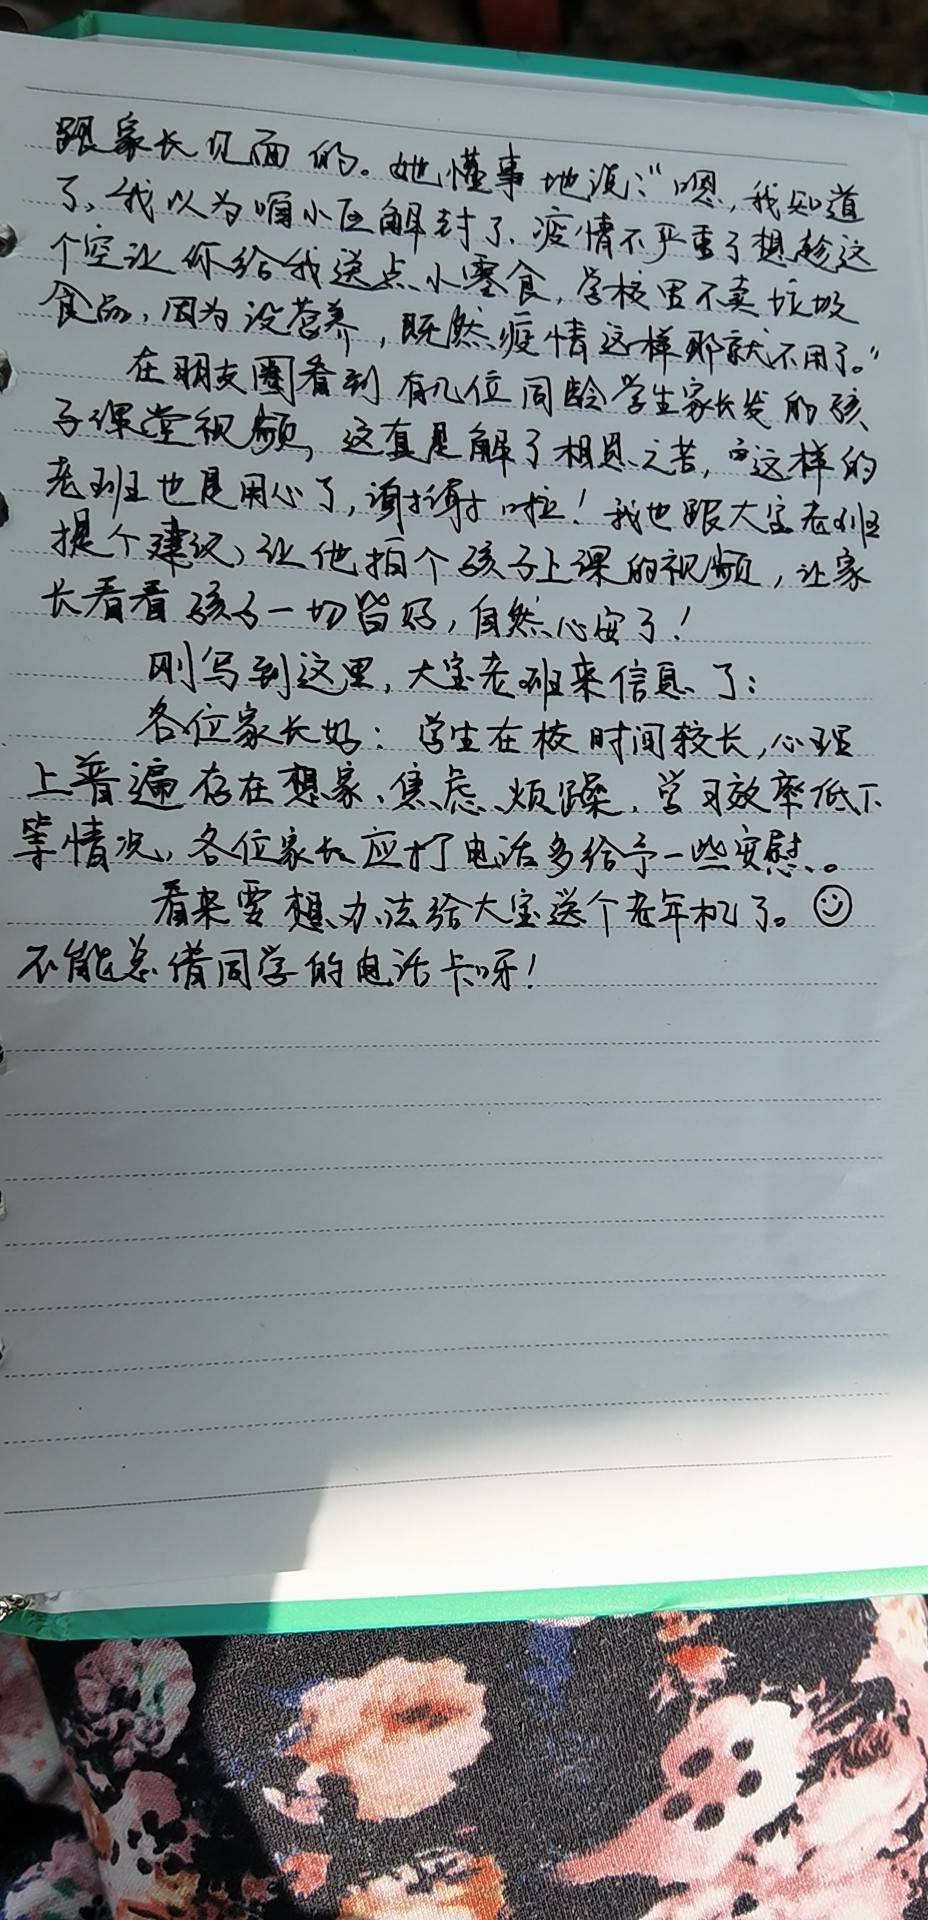 跟家长见面的。她懂事地说：“嗯，我知道
了，我以为咱小区解封了、疫情不严重了想趁这
个空让你给我送点小零食，学校里不卖垃圾
食品，因为没营养，既然疫情这样那就不用了。”
在朋友圈看到有几位同龄学生家长发的孩
子课堂视频，这真是解了相思之苦，这样的
老班也是用心了，谢谢啦！我也跟大宝老班
提个建议，让他拍个孩子上课的视频，让家
长看看孩子一切皆好，自然心安了！
刚写到这里，大宝老班来信息了：
各位家长好：学生在校时间较长，心理
上普遍存在想家、焦虑、烦躁，学习效率低下
等情况，各位家长应打电话多给予一些安慰。
看来要想办法给大宝送个老年机了。☺
不能总借同学的电话卡呀！